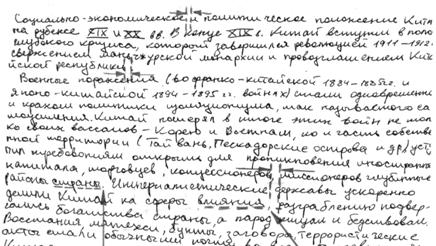 Социально-экономическое и политическое положение Кита
на рубеже XIX и XX вв. В конце XIX в. Китай вступил в поло
глубокого кризиса, который завершился революцией 1911-1912
свержением маньчжурской монархии и провозглашением Кит
йской республики
Военные поражения (во франко-китайской 1884-1885гг. и
японо-китайской 1894-1895 гг. войнах) стали одновременно
и крахом политики
Китай потерял в итоге этих войн не тол
ко своих вассалов - Корею и Вьетнам, но и часть собстве
нной территории (Тайвань, Пескадорские острова и другие
требованиям открыть для проникновения иностран
капитала, торговцев, концессионеров, миссионеров глубинные
районы страны. Империалистические державы ускоренно
делили Китай на сферы влияния, разграблению подвер-
гались богатства страны, а народ нищал и бедствовал.
Восстания, мятежи, бунты, заговоры, террористические
акты стали обычными